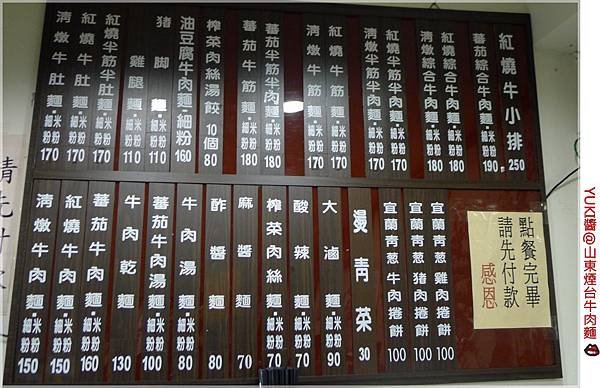 紅燒牛小排 250
蕃茄綜合牛肉麵·細粉米粉 190
紅燒綜合牛肉麵·細粉米粉 180
清燉綜合牛肉麵·細粉米粉 180
紅燒半筋半肉麵·細粉米粉 170
清燉半筋半肉麵·細粉米粉 170
紅燒牛筋麵·細粉米粉 170
清燉牛筋麵·細粉米粉 170
蕃茄半筋半肉麵·細粉米粉 180
蕃茄牛筋麵·細粉米粉 180
榨菜肉絲湯餃10個 80
油豆腐牛肉麵細粉 160
豬腳麵·細粉米粉 110
雞腿麵·細粉米粉 110
紅燒半筋半肚麵·細粉米粉 170
紅燒牛肚麵·細粉米粉 170
清燉牛肚麵·細粉米粉 170
宜蘭青葱雞肉捲餅 100
宜蘭青葱豬肉捲餅 100
宜蘭青葱牛肉捲餅 100
燙青菜 30
大滷麵·細粉米粉 90
酸辣麵·細粉米粉 70
榨菜肉絲麵·細粉米粉 70
麻醬麵 70
酢醬麵 80
牛肉湯麵·細粉米粉 80
蕃茄牛肉湯麵·細粉米粉 100
牛肉乾麵 130
蕃茄牛肉麵·細粉米粉 160
紅燒牛肉麵·細粉米粉 150
清燉牛肉麵·細粉米粉 150
點餐完畢
請先付款
感恩
請先付
YUKI醬@山東煙台牛肉麵